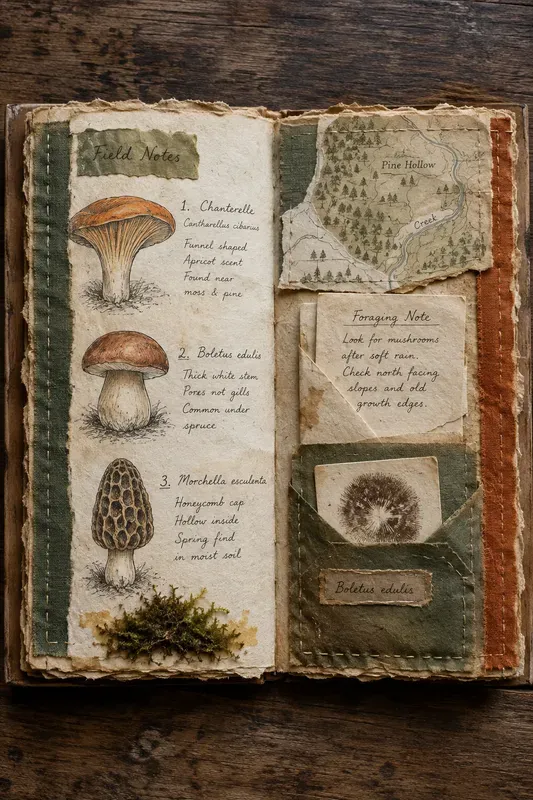 Field Notes
1. Chanterelle
Cantharellus cibarius
Funnel shaped
Apricot scent
Found near
moss & pine
2. Boletus edulis
Thick white stem
Pores not gills
Common under
spruce
3. Morchella esculenta
Honeycomb cap
Hollow inside
Spring find
in moist soil
Pine Hollow
Creek
Foraging Note
Look for mushrooms
after soft rain.
Check north facing
slopes and old
growth edges.
Boletus edulis